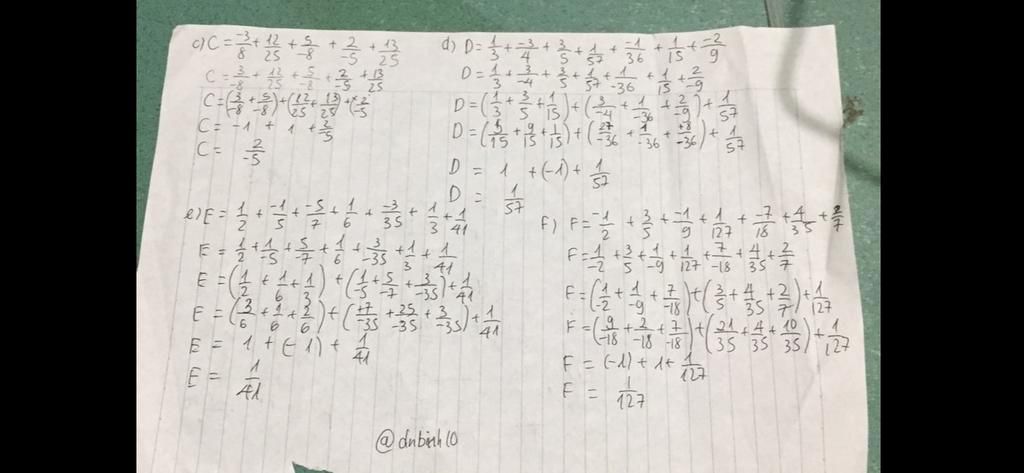 c) C = -3/8 + 12/25 + 5/-8 + 2/-5 + 13/25
C = 3/-8 + 12/25 + 5/-8 + 2/-5 + 13/25
C = (3/-8 + 5/-8) + (12/25 + 13/25) + 2/-5
C = -1 + 1 + 2/-5
C = 2/-5
d) D = 1/3 + -3/4 + 3/5 + 1/57 + -1/36 + 1/15 + -2/9
D = 1/3 + 3/-4 + 3/5 + 1/57 + 1/-36 + 1/15 + 2/-9
D = (1/3 + 3/5 + 1/15) + (3/-4 + 1/-36 + 2/-9) + 1/57
D = (5/15 + 9/15 + 1/15) + (27/-36 + 1/-36 + +8/-36) + 1/57
D = 1 + (-1) + 1/57
D = 1/57
e) E = 1/2 + -1/5 + -5/7 + 1/6 + -3/35 + 1/3 + 1/41
E = 1/2 + 1/-5 + 5/-7 + 1/6 + 3/-35 + 1/3 + 1/41
E = (1/2 + 1/6 + 1/3) + (1/-5 + 5/-7 + 3/-35) + 1/41
E = (3/6 + 1/6 + 2/6) + (+7/-35 + 25/-35 + 3/-35) + 1/41
E = 1 + (-1) + 1/41
E = 1/41
F) F = -1/2 + 3/5 + -1/9 + 1/127 + -7/18 + 4/35 + 2/7
F = 1/-2 + 3/5 + 1/-9 + 1/127 + 7/-18 + 4/35 + 2/7
F = (1/-2 + 1/-9 + 7/-18) + (3/5 + 4/35 + 2/7) + 1/127
F = (9/-18 + 2/-18 + 7/-18) + (21/35 + 4/35 + 10/35) + 1/127
F = (-1) + 1 + 1/127
F = 1/127